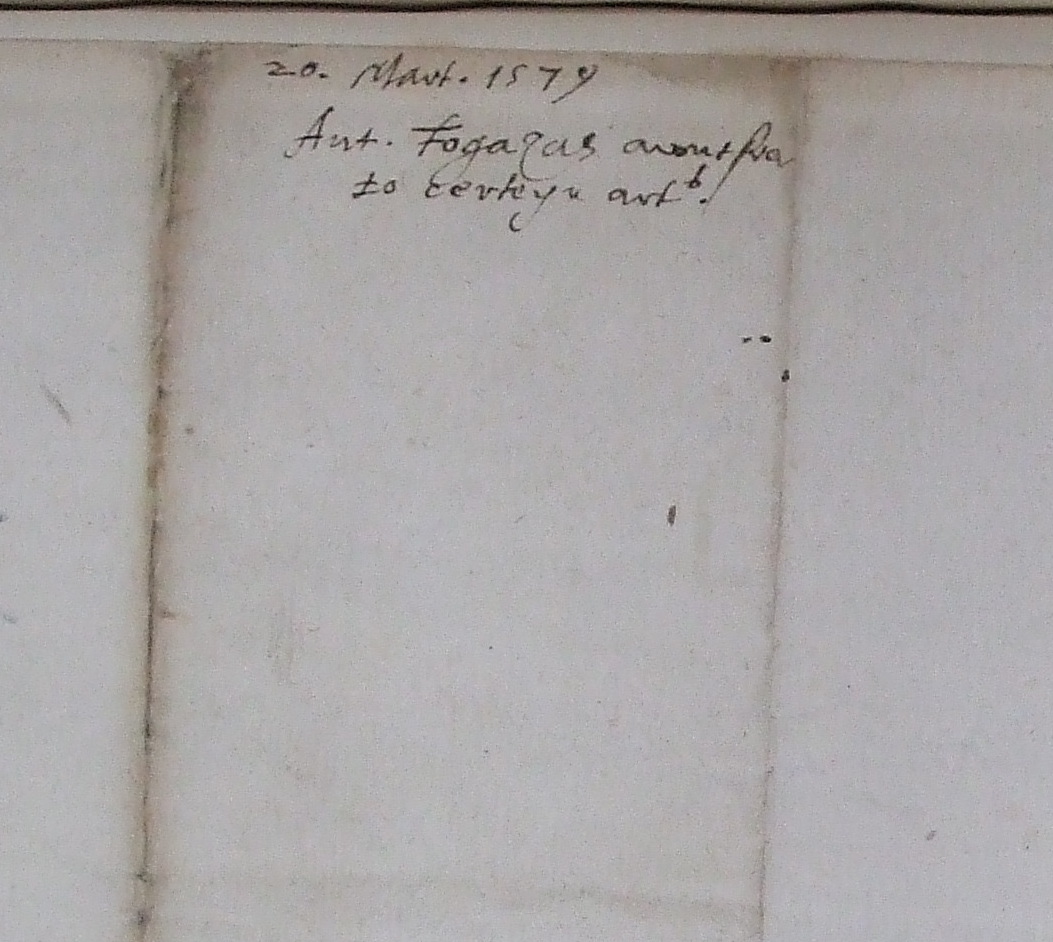 20. Mart. 1579
Ant. Fogazas
to certeyn art^s.